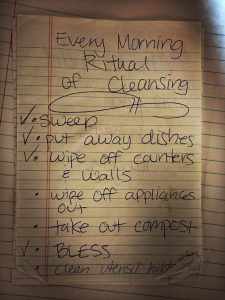 Every Morning
Ritual
of Cleansing
✓• sweep
✓• put away dishes
✓• wipe off counters
& walls
• wipe off appliances
out
• take out compost
✓• BLESS
• clean utensil